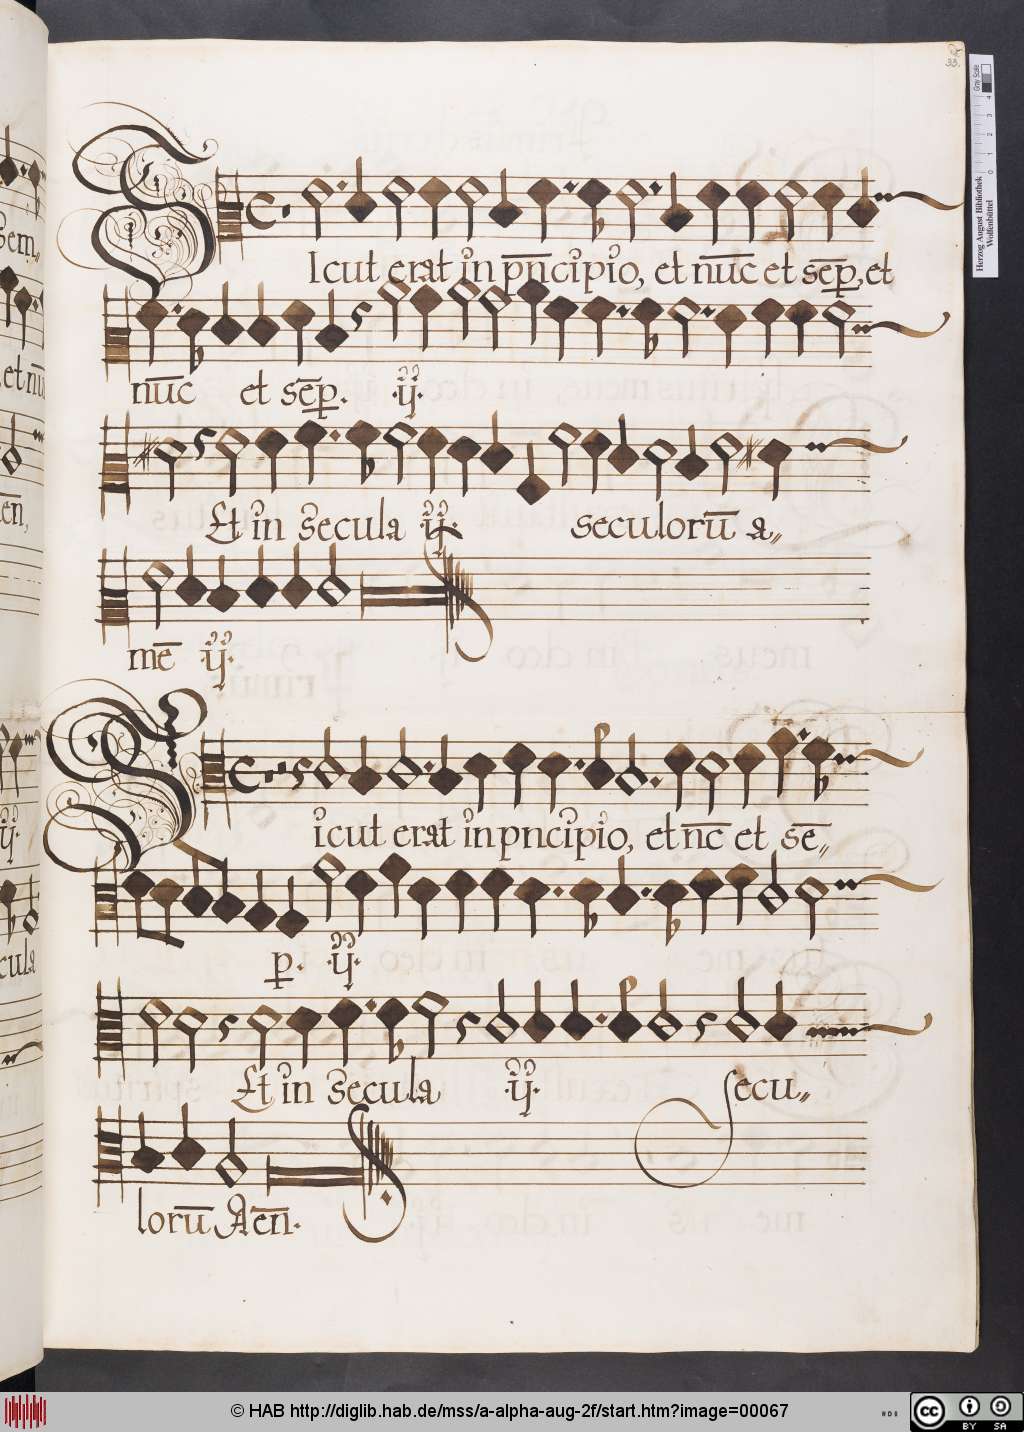 33.
SIcut erat in pn̄cipio, et nūc et sēp, et
nūc et sēp. ·ij·
Et in secula ·ij· seculorū a„
mē ·ij·
Sicut erat in pncipio, et nc̄ et sē„
p. ·ij·
Et in secula ·ij· secu„
lorū Aen̄.
Sem„
et nū
en̄,
·ij·
cula
Herzog August Bibliothek
Wolfenbüttel
Gray Scale
0 1 2 3 4
© HAB http://diglib.hab.de/mss/a-alpha-aug-2f/start.htm?image=00067
cc BY SA